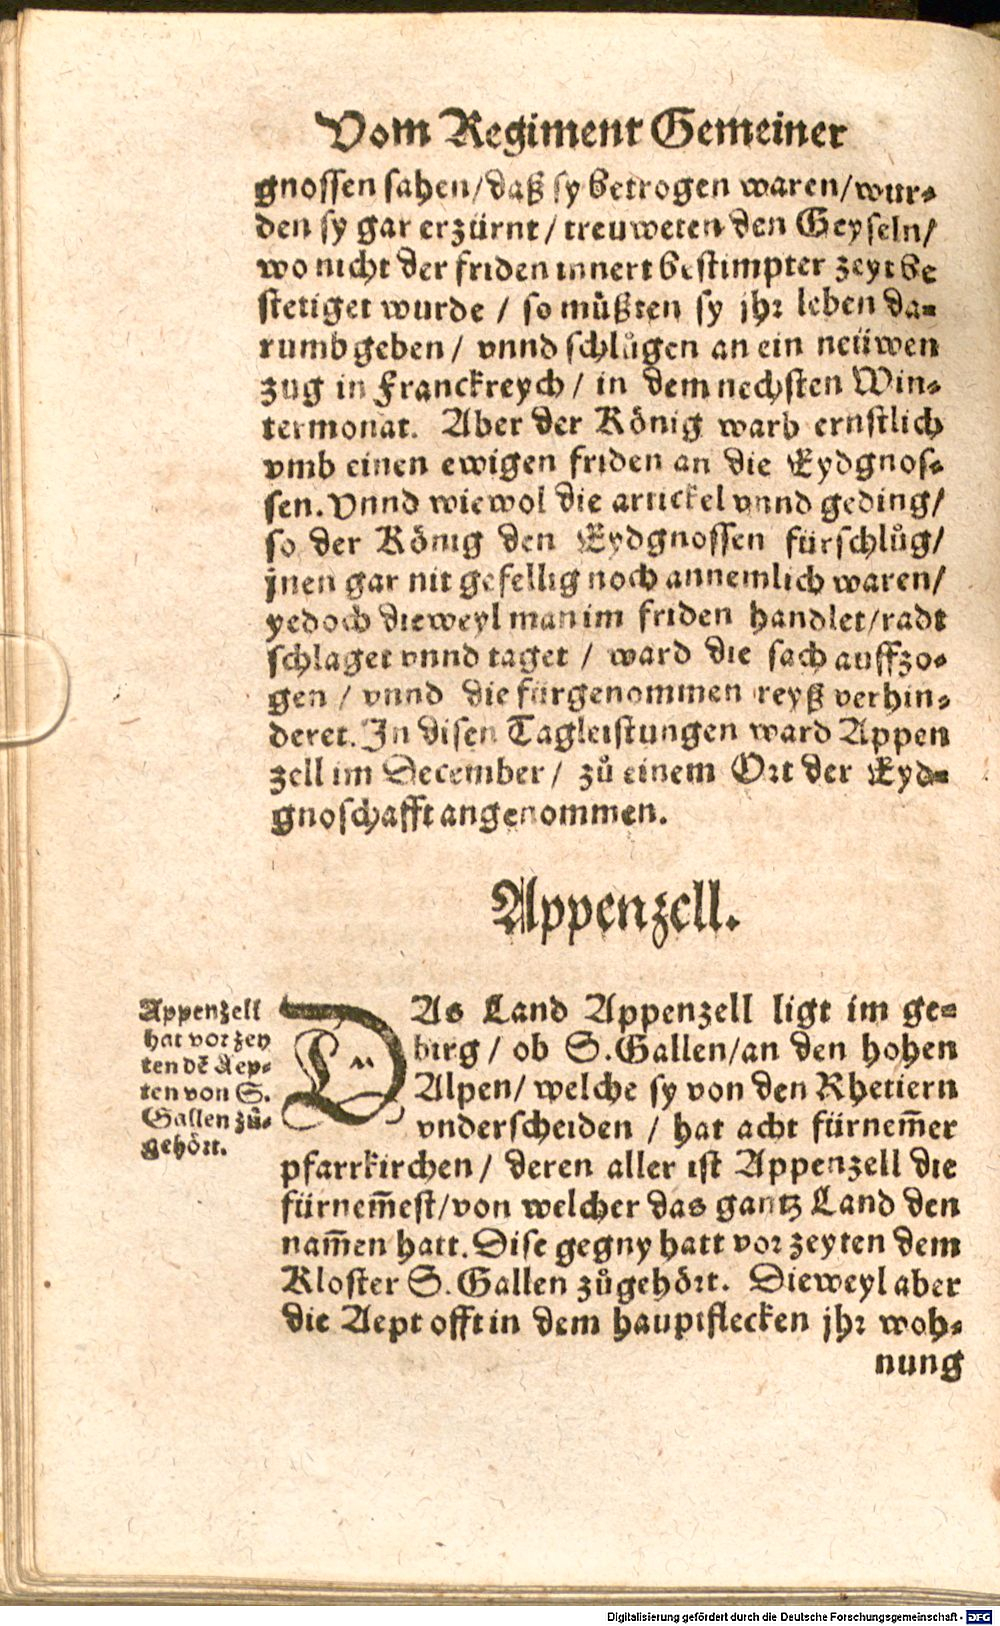 Vom Regiment Gemeiner
gnossen sahen/daß sy betrogen waren/wur-
den sy gar erzürnt/treuweten den Geyseln/
wo nicht der friden innert bestimpter zeyt be
stetiget wurde/so müßten sy jhr leben da-
rumb geben/vnnd schlůgen an ein neüwen
zug in Franckreych/in dem nechsten Win-
termonat. Aber der König warb ernstlich
vmb einen ewigen friden an die Eydgnos-
sen. Vnnd wiewol die artickel vnnd geding/
so der König den Eydgnossen fürschlůg/
jnen gar nit gefellig noch annemlich waren/
yedoch dieweyl man im friden handlet/radt
schlaget vnnd taget/ward die sach auffzo-
gen/vnnd die fürgenommen reyß verhin-
deret. In disen Tagleistungen ward Appen
zell im December/zů einem Ort der Eyd-
gnoschafft angenommen.
Appenzell.
Appenzell
hat vor zey
ten dē Aep-
ten von S.
Gallen zů-
gehört.
DAs Land Appenzell ligt im ge-
birg/ob S. Gallen/an den hohen
Alpen/welche sy von den Rhetiern
vnderscheiden/hat acht fürnem̄er
pfarrkirchen/deren aller ist Appenzell die
fürnem̄est/von welcher das gantz Land den
nam̄en hatt. Dise gegny hatt vor zeyten dem
Kloster S. Gallen zůgehört. Dieweyl aber
die Aept offt in dem hauptflecken jhr woh-
nung
Digitalisierung gefördert durch die Deutsche Forschungsgemeinschaft - DFG